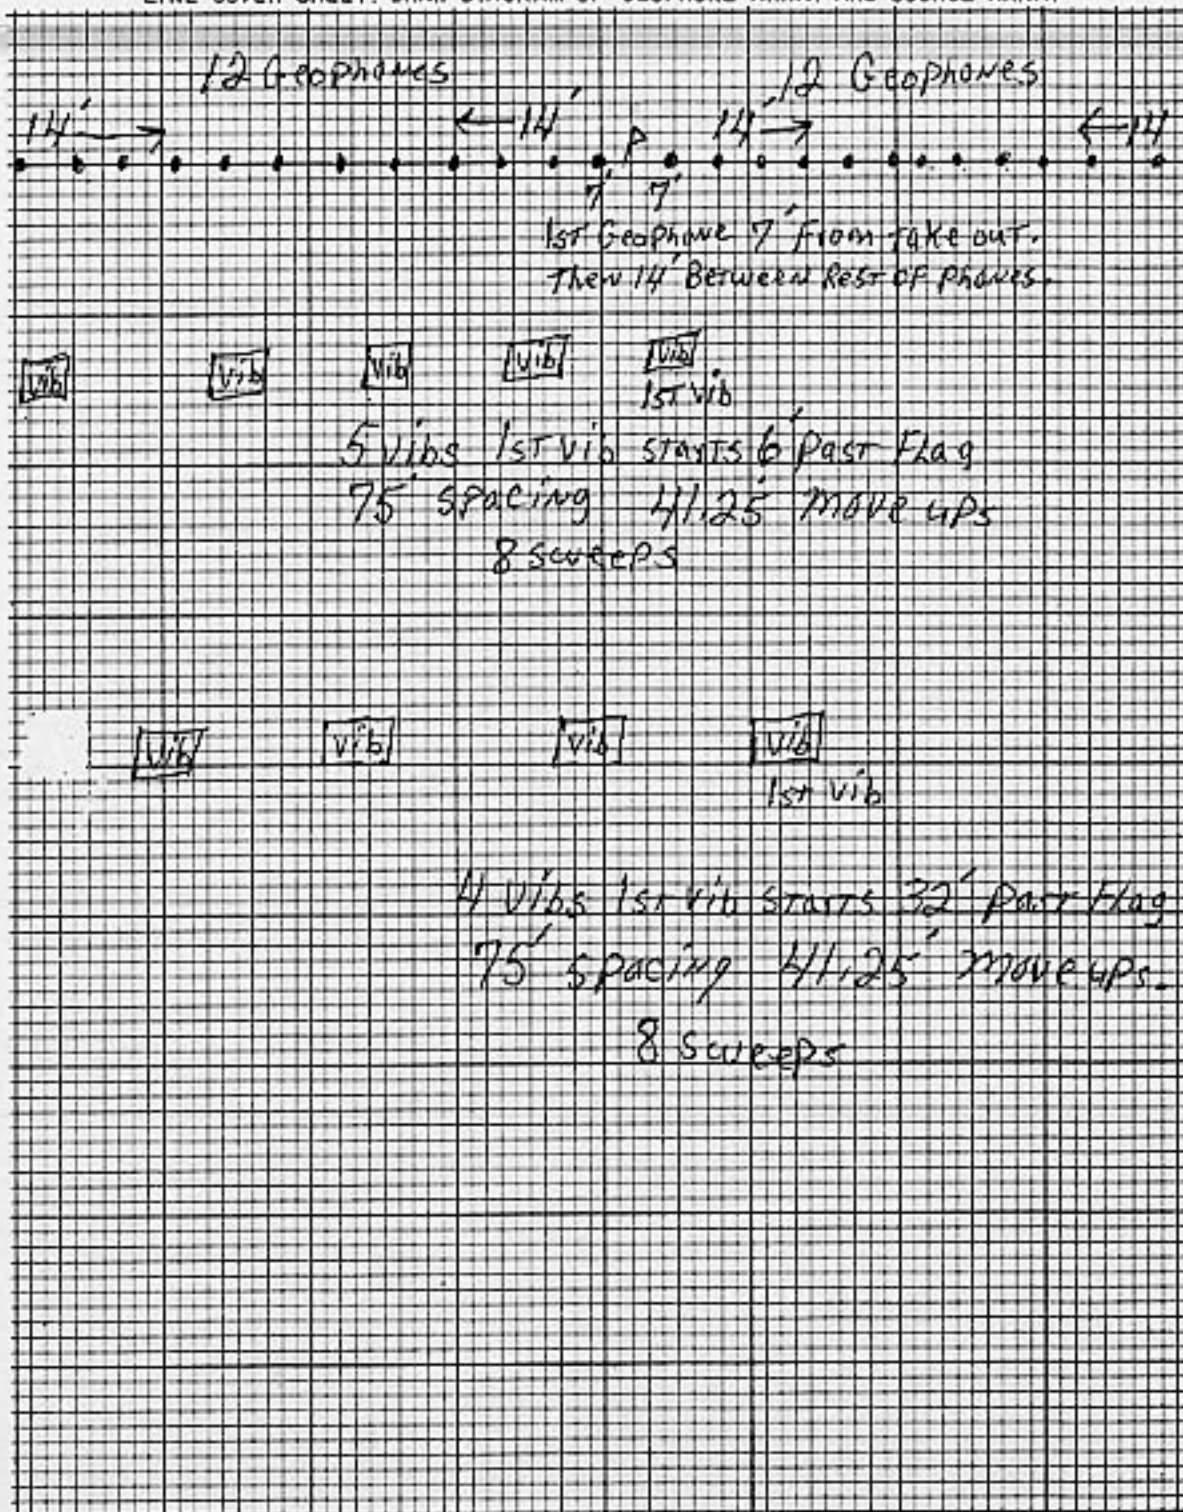 LINE COVER SHEET: DRAW DIAGRAM OF GEOPHONE ARRAY AND SOURCE ARRAY
12 Geophones 12 Geophones
14' 14' P 14' 14
7' 7'
1st Geophone 7' from take out.
Then 14' Between Rest of phones.
Vib Vib Vib Vib Vib
1st Vib
5 Vibs 1st Vib starts 6' Past Flag
75' spacing 41.25' move ups
8 sweeps
Vib Vib Vib Vib
1st Vib
4 Vibs 1st Vib starts 32' Past Flag
75' spacing 41.25' move ups.
8 sweeps